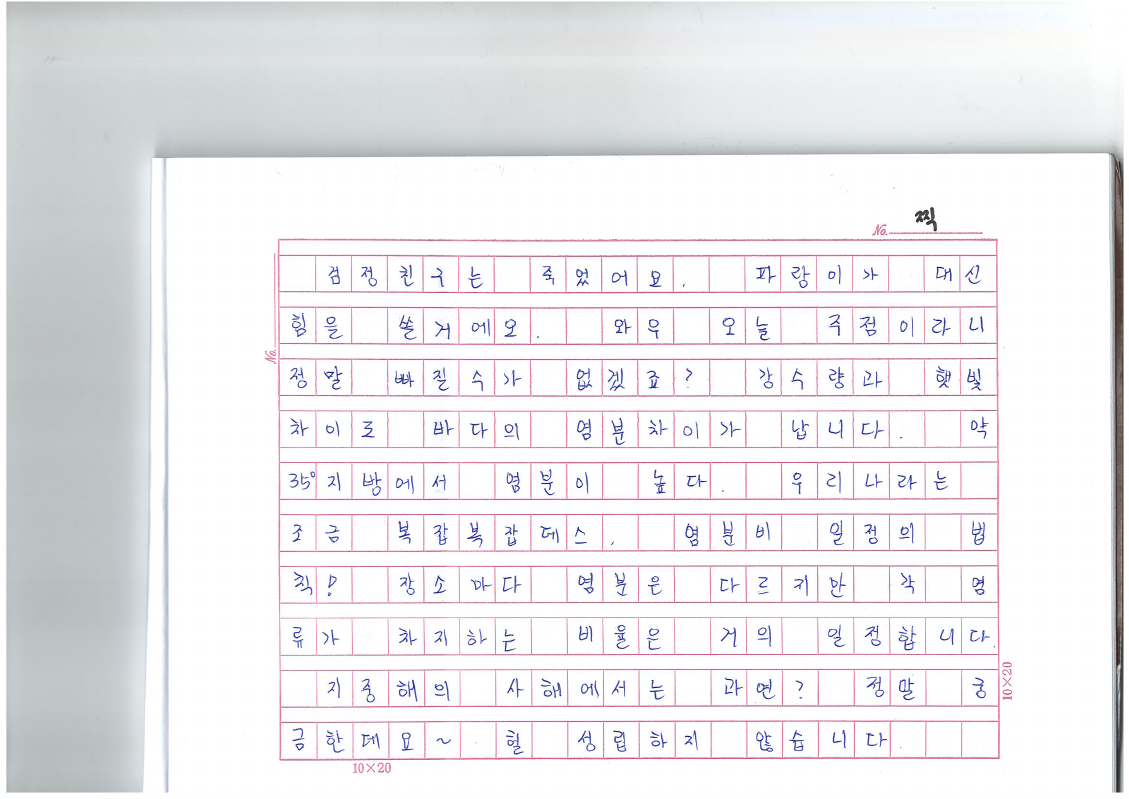 No. 찍
검정친구는 죽었어요. 파랑이가 대신
힘을 쓸거에오. 와우 오늘 주점이라니
No.
정말 빠질수가 없겠죠? 강수량과 햇빛
차이로 바다의 염분차이가 납니다. 약
35°지방에서 염분이 높다. 우리나라는
조금 복잡복잡데스. 염분비 일정의 법
칙! 장소마다 염분은 다르지만 각 염
류가 차지하는 비율은 거의 일정합니다.
지중해의 사해에서는 과연? 정말 궁
금한데요~ 힐 성립하지 않습니다.
10×20
10×20